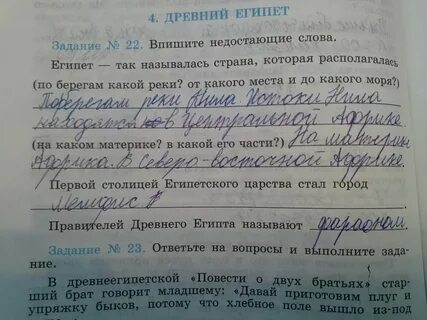 4. ДРЕВНИЙ ЕГИПЕТ
Задание № 22. Впишите недостающие слова.
Египет — так называлась страна, которая располагалась
(по берегам какой реки? от какого места и до какого моря?)
По берегам реки Нила Истоки Нила
находятся в Центральной Африке
(на каком материке? в какой его части?) На материке
Африка. В Северо-восточной Африке.
Первой столицей Египетского царства стал город
Мемфис
Правителей Древнего Египта называют фараоном.
Задание № 23. Ответьте на вопросы и выполните зада-
ние.
В древнеегипетской «Повести о двух братьях» стар-
ший брат говорит младшему: «Давай приготовим плуг и
упряжку быков, потому что хлебное поле вышло из-под